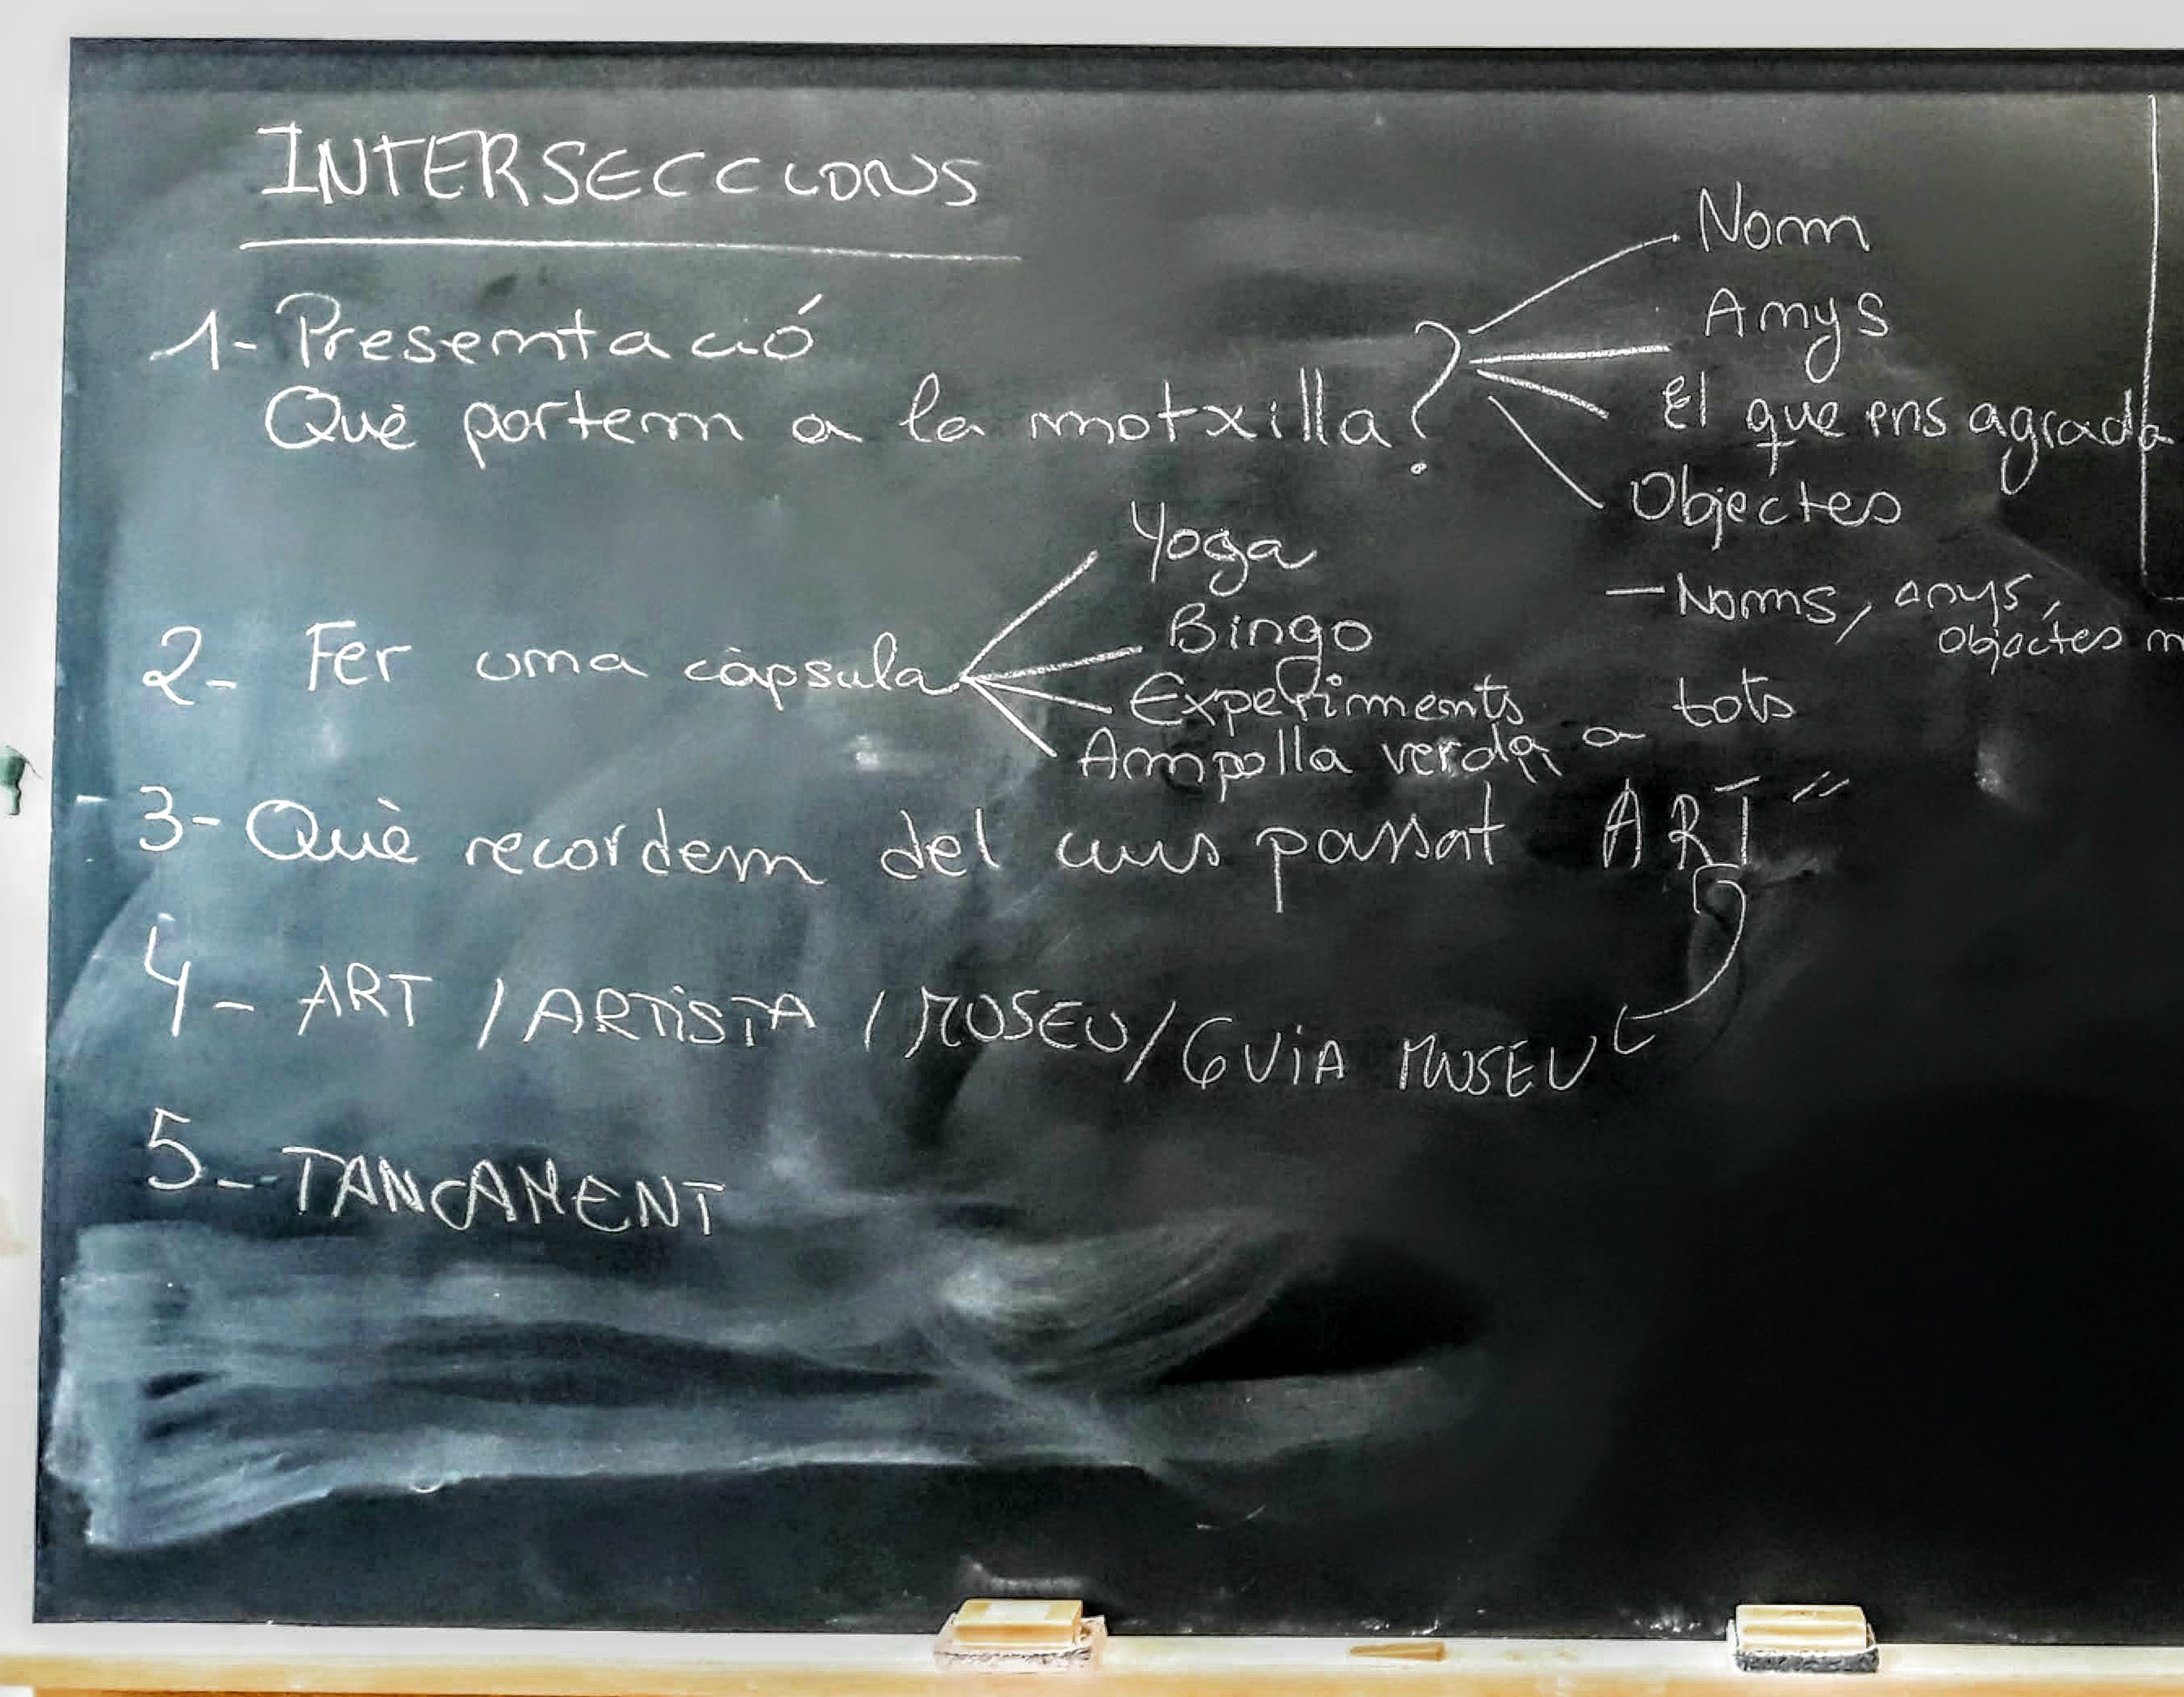 INTERSECCIONS
1- Presentació
Què portem a la motxilla?
Nom
Anys
El que ens agrada
Objectes
- Noms, anys,
objectes
2- Fer una càpsula
Yoga
Bingo
Experiments
Ampolla verda a tots
3- Què recordem del curs passat ART"
4- ART / ARTISTA / MUSEU / GUIA MUSEU
5- TANCAMENT